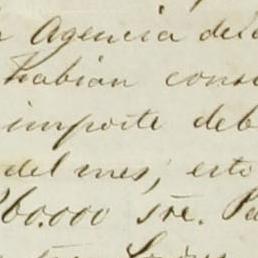 Agencia de
habian cons
importe deb
del mes, esto
60.000